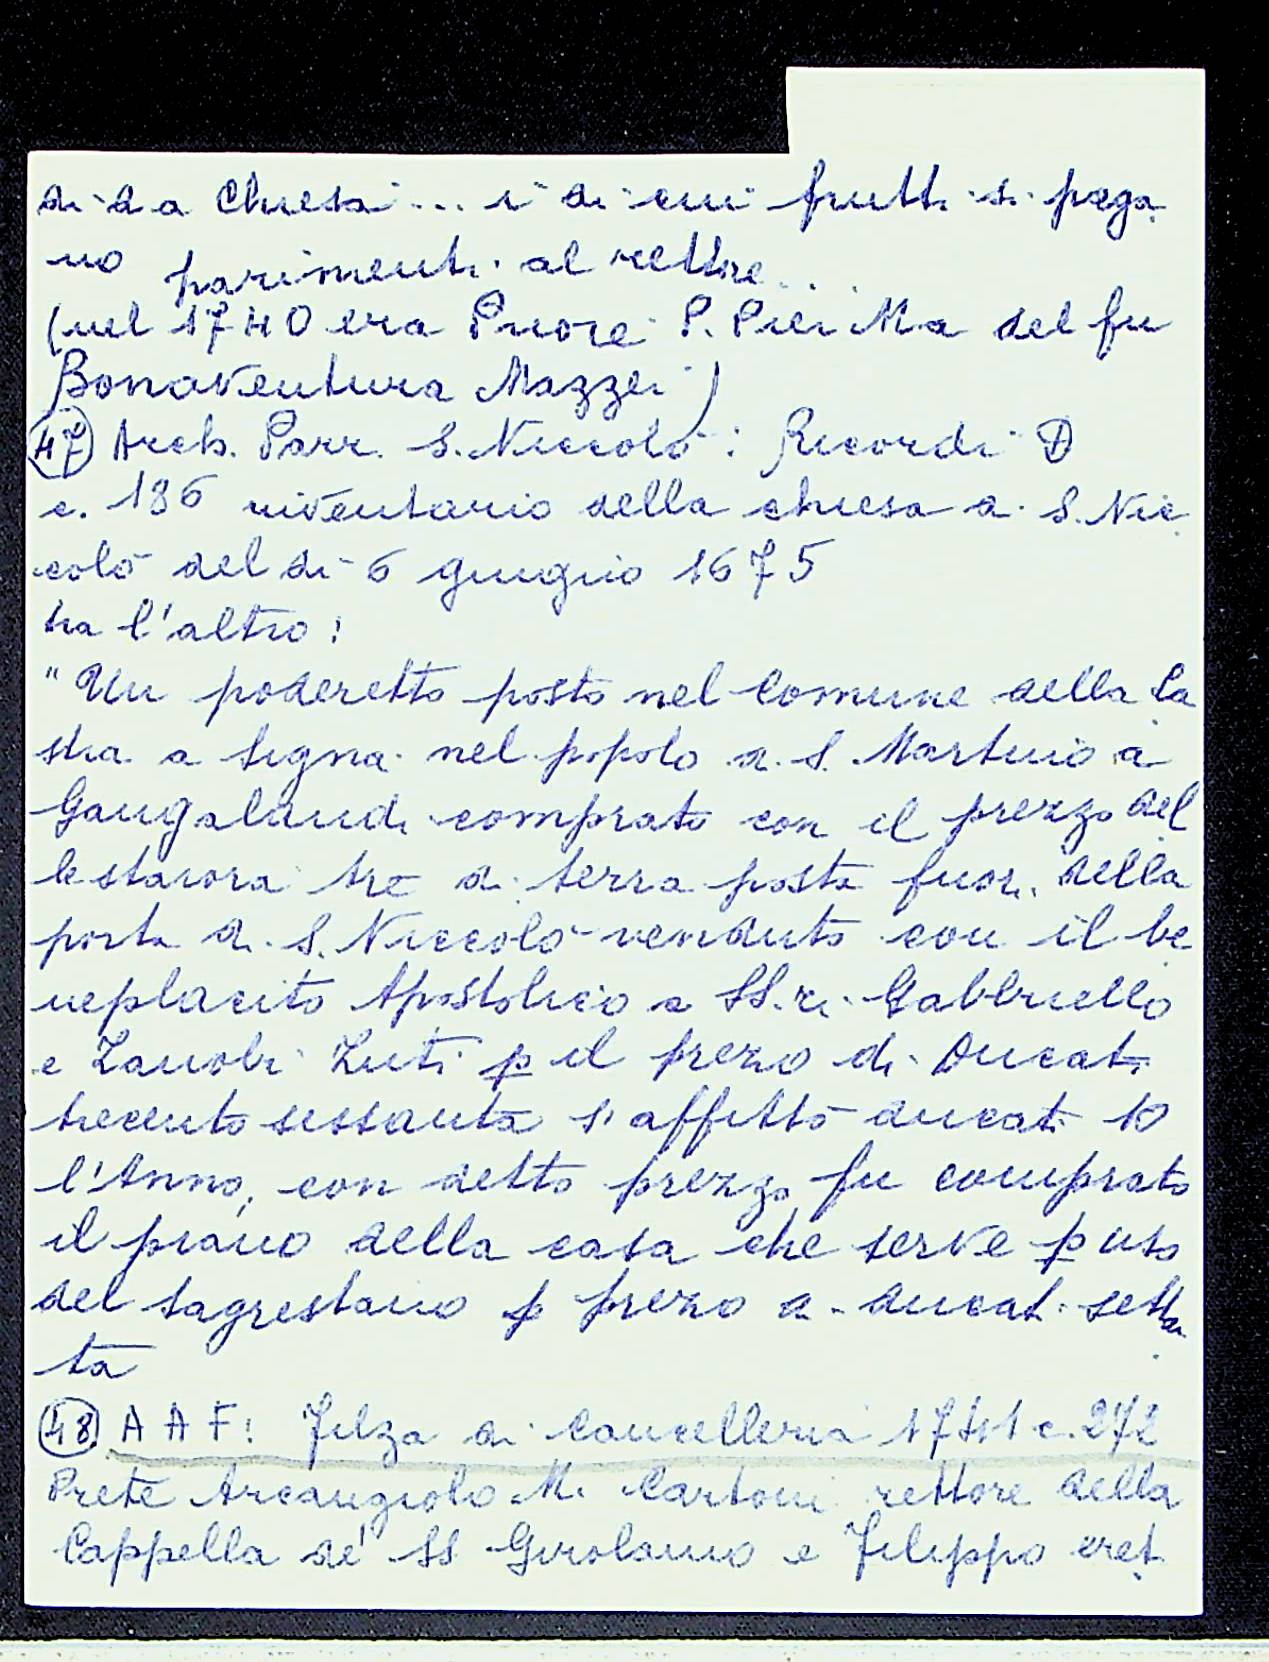 di da Chiesa ... i di cui frutti si paga
no parimenti al rettore ...
(nel 1740 era Priore P. Pier Ma del fu
Bonaventura Mazzei)
(47) Arch. Parr. S. Niccolò: Ricordi D
c. 186 inventario della chiesa di S. Nic
colò del di 6 giugno 1675
tra l'altro:
"Un poderetto posto nel Comune della La
stra a Signa nel popolo di S. Martino a
Gangalandi comprato con il prezzo del
le staiora tre di terra posta fuori della
porta di S. Niccolò venduto con il be
neplacito Apostolico a SS.ri Gabbriello
e Zanobi p il prezzo di Ducati
trecento sessanta s'affittò ducati 10
l'Anno, con detto prezzo fu comprato
il piano della casa che serve p uso
del sagrestano p prezzo di ducati settan
ta
(48) A A F: Filza di Cancelleria 1741 c. 272
Prete Arcangiolo M. Cartoni rettore della
Cappella de' SS Girolamo e Filippo eret